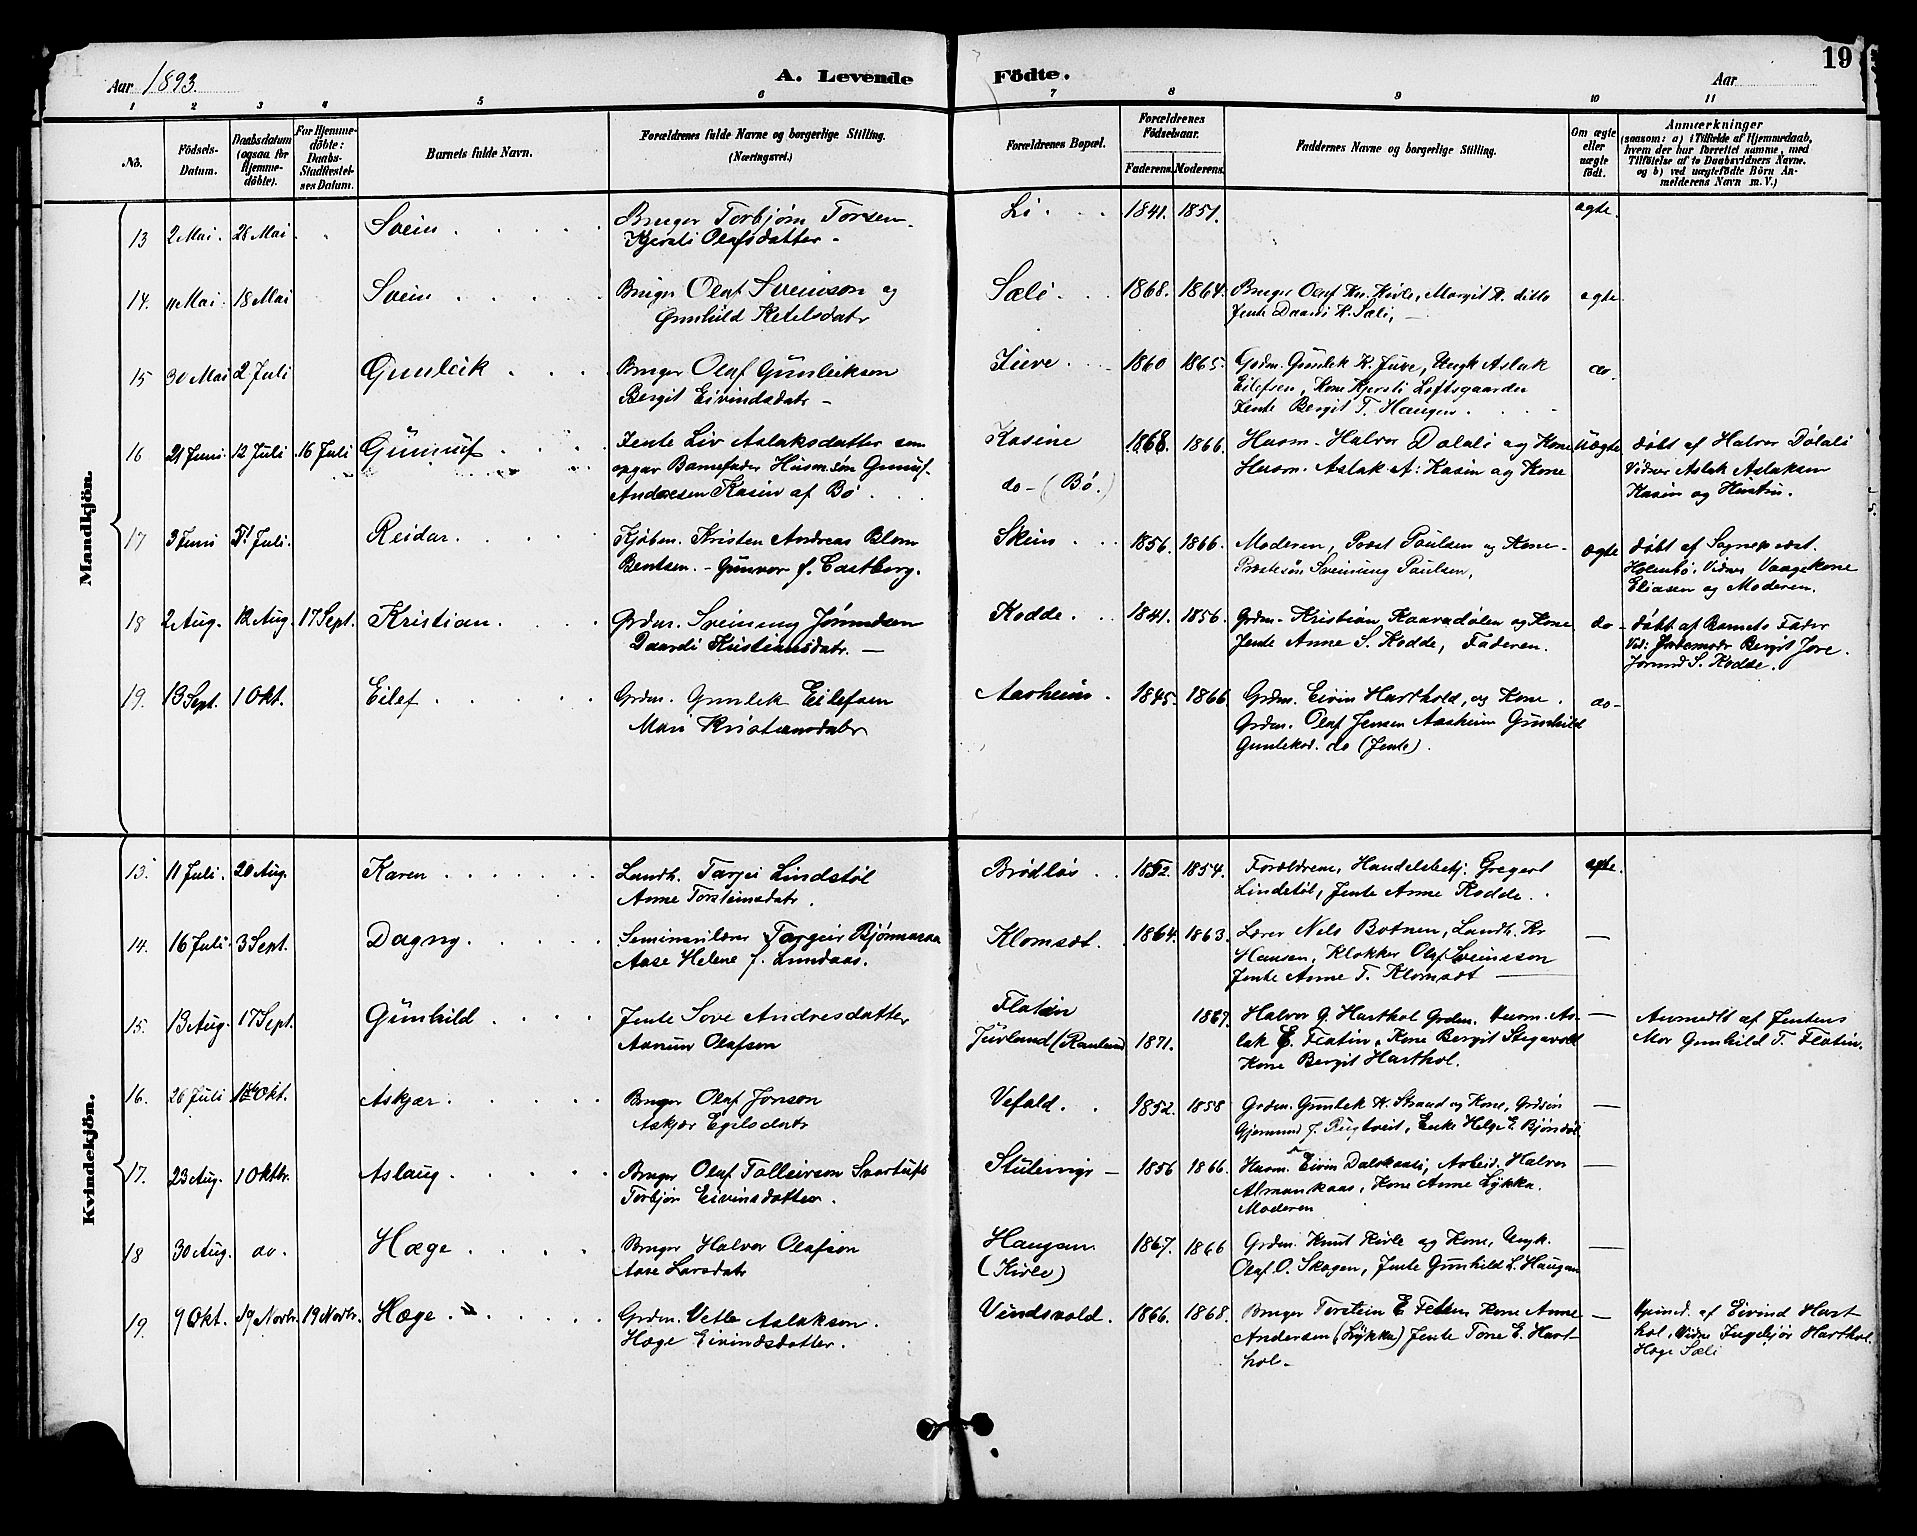 19
Aar 1893.
A. Levende Födte.
Aar
1 2 3 4 5 6 7 8 9 10 11
No.
Födsels-Datum.
Daabsdatum (ogsaa for Hjemme-döbte).
For Hjemme-döbte: Daabs-Stadfæstel-ses Datum.
Barnets fulde Navn.
Forældrenes fulde Navne og borgerlige Stilling. (Næringsvei.)
Forældrenes Bopæl.
Forældrenes Födselsaar.
Faderens. Moderens.
Faddernes Navne og borgerlige Stilling.
Om ægte eller uægte födt.
Anmærkninger
(saasom: a) i Tilfælde af Hjemmedaab, hvem der har forrettet samme, med Tilföielse af to Daabsvidners Navne. og b) ved uægtefödte Börn An-melderens Navn m. V.)
Mandkjön.
13 2 Mai. 28 Mai Svein Bruger Torbjørn Torsen Li 1841. 1851. ægte.
Kjersti Olafsdatter
14. 11 Mai. 18 Mai Svein Bruger Olaf Sveinson og Sæli 1868. 1864. Bruger Olaf Kn. Kirle, Margit A. ditto ægte
Gunhild Ketelsdatr Jente Daardi K. Sæli,
15 30 Mai 2 Juli Gunleik Bruger Olaf Gunleiksen Juve 1860 1865. Grdm. Gunlek K. Juve, Ungk Aslak do.
Bergit Eivindsdatr Eilefsen, Kone Kjersti Loftsgaarden
Jente Bergit T. Haugen
16 21 Juni 12 Juli 16 Juli Gunnuf Jente Liv Aslaksdatter som Kasine 1868. 1866. Husm. Halvor Dølali og Kone Uægte døbt af Halvor Dølali
opgav Barnefader Husm.søn Gunuf do (Bø.) Husm. Aslak A. Kasin og Kone Vidner Aslak Aslaksen
Andresen Kasin af Bø Kasin og Hustru.
17 3 Juni Juli. Reidar Kjøbm. Kristen Andreas Blom Skien 1856. 1866. Moderen, Præst Paulsen og Kone ægte døbt af Sognepræst.
Bentsen. Gunvor f. Castberg. Præstesøn Sveinung Paulsen, Holmbo. Vidner Vaagekone
Eliasen og Moderen.
18 2 Aug. 12 Aug. 17 Sept. Kristian Grdm. Sveinung Jørundsen Kodde 1841. 1856. Grdm. Kristian Kaavedølen og Kone do døbt af Barnets Fader
Daardi Kristiansdatr. Jente Anne S. Kodde, Faderen. Vid: Jordemodr Bergit Jore.
Jørund S. Kodde.
19. 13 Sept. 1 Okt. Eilef Grdm. Gunlek Eilefsen Aasheim 1845. 1866. Grdm. Eivin Harthold, og Kone do
Mari Kristiansdatr Grdm. Olaf Jensen Aasheim Gunhild
Gunleksd. do (Jente).
Kvindekjön.
13. 11 Juli. 20 Aug. Karen Landh. Tarjei Lindstøl Brødløs 1852. 1854. Forældrene, Handelsbetj. Gregert ægte.
Anne Torsteinsdatr. Lindstøl, Jente Anne Kodde.
14. 16 Juli. 3 Sept. Dagny Seminarilærer Targeir Bjønnaraa Klomsæt. 1864. 1863. Lærer Nils Botnen, Landh. Kr
Aase Helene f. Lundaas. Hansen, Klokker Olaf Sveinsson
Jente Anne T. Klomsæt
15. 13 Aug. 17 Sept. Gunhild Jente Sove Andresdatter Flatin 1867. Halvor G. Harthol Grdm. Husm. As-
Aanun Olafson Juvland (Rauland 1871. lak E. Flatin, Kone Bergit Stegavold
Kone Bergit Harthol.
Anmeldt af Jentens
Mor Gunhild T. Flatin.
16. 26 Juli Okt. Askjær Bruger Olaf Jonson Vefald 1852. 1858 Grdm. Gunlek H. Strand og Kone, Grdsøn
Askjær Egilsdatr Gjermund J. Rugtveit, Enke Helge E. Bjørndøl
17. 23 Aug. 1 Oktbr. Aslaug Bruger Olaf Tolleivson Svartufs Stulungi 1856 1866. Husm. Eivin Dalskaasi, Arbeid. Halvor
Torbjør Eivinsdatter. Almankaas, Kone Anne Lykka.
Moderen
18 30 Aug. do. Hæge Bruger Halvor Olafson Haugen 1867. 1866 Grdm. Knut Kirle og Kone, Ungk.
Aase Larsdatr (Kirle) Olaf O. Skogen, Jente Gunhild L. Haugen
19. 9 Okt. 19 Novbr. 19 Novbr. Hæge Grdm. Vetle Aslakson. Vindsvold. 1866. 1868. Bruger Torstein E Kone Anne
Hæge Eivindsdatter. Andersen (Lykka) Jente Tone E. Hart-
hol
af Eivind Hart
hol, Vidner Ingebjør Harthol.
Hæge Sæli